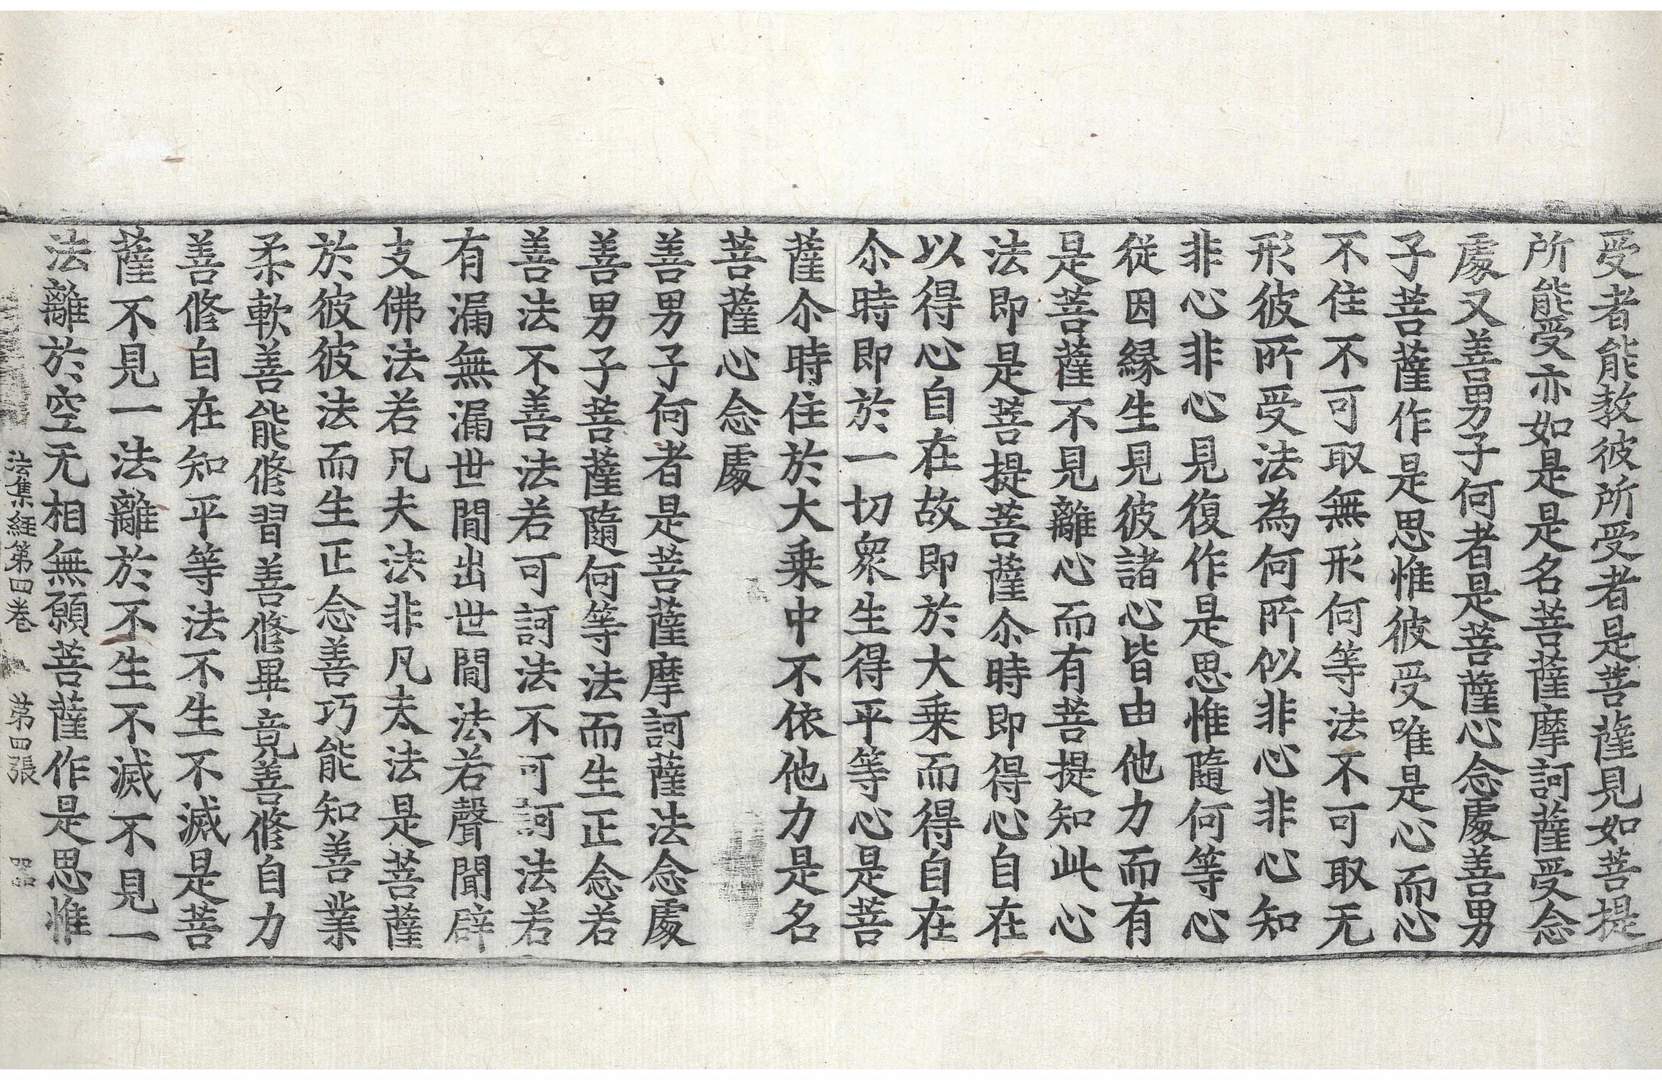 受者能教彼所受者是菩薩見如菩提
所能受亦如是是名菩薩摩訶薩受念
處又善男子何者是菩薩心念處善男
子菩薩作是思惟彼受唯是心而心
不住不可取無形何等法不可取无
形彼所受法為何所似非心非心知
非心非心見復作是思惟隨何等心
従因縁生見彼諸心皆由他力而有
是菩薩不見離心而有菩提知此心
法即是菩提菩薩尒時即得心自在
以得心自在故即於大乗而得自在
尒時即於一切衆生得平等心是菩
薩尒時住於大乗中不依他力是名
菩薩心念處
善男子何者是菩薩摩訶薩法念處
善男子菩薩隨何等法而生正念若
善法不善法若可訶法不可訶法若
有漏無漏世間出世間法若聲聞辟
支佛法若凡夫法非凡夫法是菩薩
於彼彼法而生正念善巧能知善業
柔軟善能修習善修畢竟善修自力
善修自在知平等法不生不滅是菩
薩不見一法離於不生不滅不見一
法離於空无相無願菩薩作是思惟
法集経第四巻 第四張 器